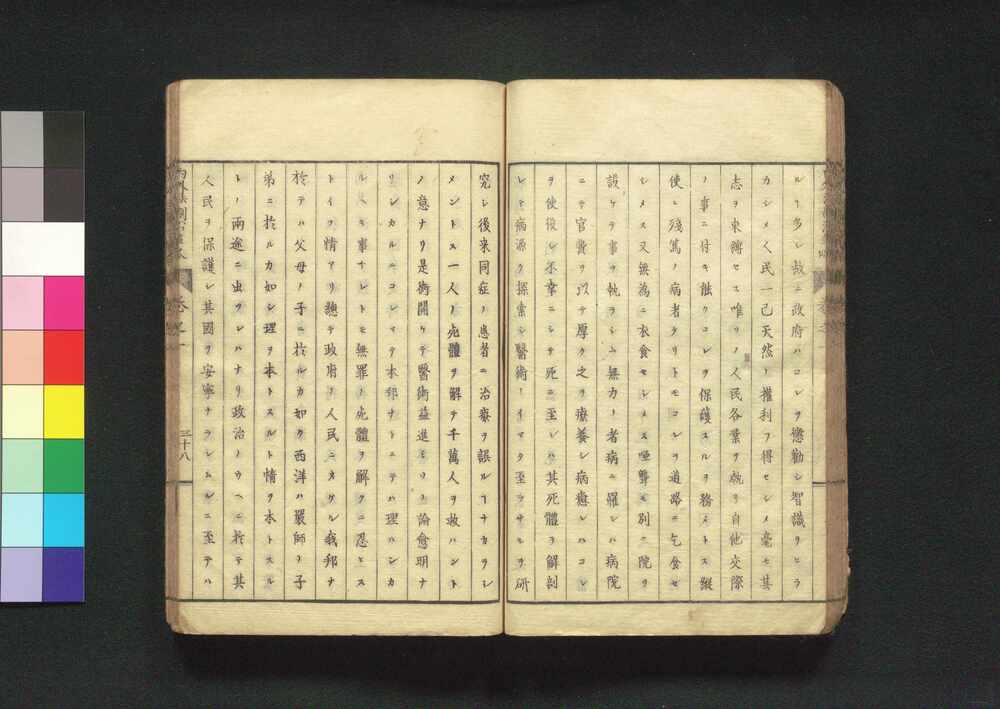 ルヿ多シ故ニ政府ハコレヲ懲勸シ智識ヲヒラ
カシメ人民一己天然ノ權利ヲ得セシメ毫モ其
志ヲ束縛セス唯ソノ人民各業ヲ執リ自他交際
ノ事ニ付キ能クコレヲ保護スルヲ務メトス縱
使ヒ殘篤ノ病者タリトモコレヲ道路ニ乞食セ
シメス又無為ニ衣食セシメス唖聾モ別ニ院ヲ
設ケテ事ヲ執ラシム無力ノ者病ニ罹レハ病院
ニテ官費ヲ以テ厚ク之ヲ療養シ病癒レハコレ
ヲ使役シ不幸ニシテ死ニ至レハ其死體ヲ解剖
シテ病源ヲ探索シ醫術ノイマタ至ラサルヲ研
究シ後来同症ノ患者ニ治療ヲ誤ルヿナカラシ
メントス一人ノ死體ヲ解テ千萬人ヲ救ハント
ノ意ナリ是術開ケテ醫術益進ミソノ論愈明ナ
リシカルニコレマテ本邦ナトニテハ理ハシカ
ルヘキ事ナレトモ無罪ノ死體ヲ解クニ忍ヒス
トイフ情アリ總テ政府ノ人民ニオケル我邦ナ
於テハ父母ノ子ニ於ルカ如ク西洋ハ嚴師ノ子
弟ニ於ルカ如シ理ヲ本トスルト情ヲ本トスル
トノ兩途ニ出ツレハナリ政治ノウヘニ於テ其
人民ヲ保護シ其國ヲ安寧ナラシムルニ至テハ
卷之一
三十八